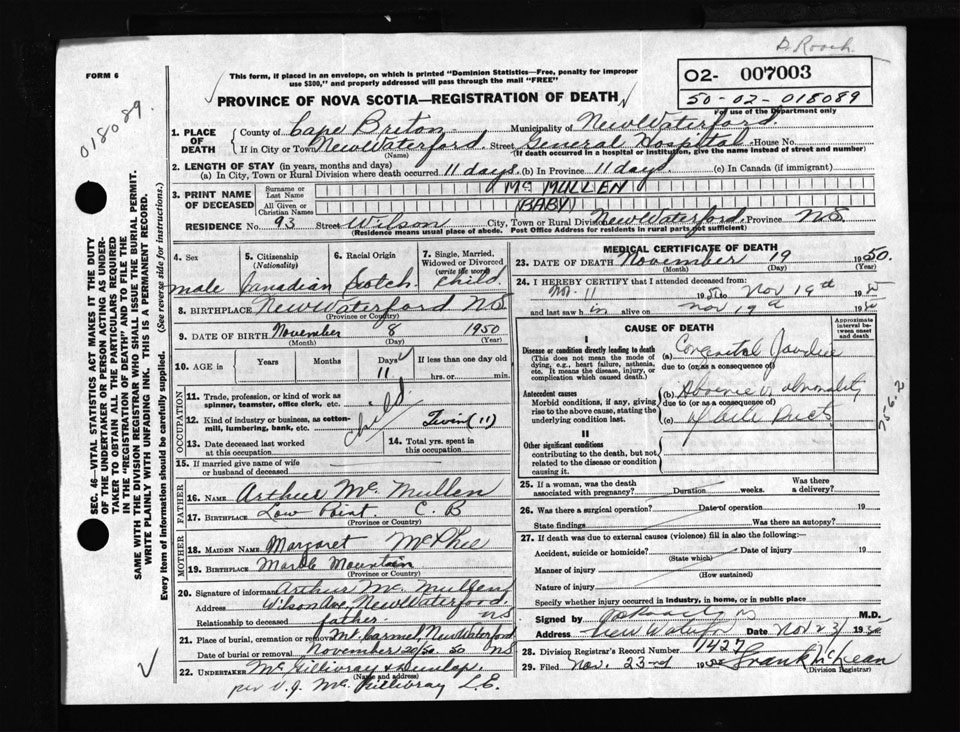 D. Roach.
FORM 6
This form, if placed in an envelope, on which is printed "Dominion Statistics—Free, penalty for improper
use $300," and properly addressed will pass through the mail "FREE"
O2- 007003
50-02-018089
For use of the Department only
018089.
PROVINCE OF NOVA SCOTIA—REGISTRATION OF DEATH
1. PLACE OF DEATH
County of Cape Breton Municipality of New Waterford.
If in City or Town New Waterford. Street General Hospital House No.
(Name) (If death occurred in a hospital or institution, give the name instead of street and number)
2. LENGTH OF STAY (in years, months and days)
(a) In City, Town or Rural Division where death occurred 11 days. (b) In Province 11 days. (c) In Canada (if immigrant)
3. PRINT NAME OF DECEASED
Surname or Last Name Mc MULLEN
All Given or Christian Names (BABY)
RESIDENCE No. 93 Street Wilson City, Town or Rural Division New Waterford. Province N.S.
(Residence means usual place of abode. Post Office Address for residents in rural parts not sufficient)
4. Sex male
5. Citizenship (Nationality) Canadian
6. Racial Origin Scotch.
7. Single, Married, Widowed or Divorced (write the word) Child.
8. BIRTHPLACE New Waterford N.S.
(Province or Country)
9. DATE OF BIRTH November 8 1950
(Month) (Day) (Year)
10. AGE in Years Months Days 11 If less than one day old
hrs. or min.
OCCUPATION
11. Trade, profession, or kind of work as spinner, teamster, office clerk, etc.
child
12. Kind of industry or business, as cotton-mill, lumbering, bank, etc.
Twin (11)
13. Date deceased last worked at this occupation
14. Total yrs. spent in this occupation
15. If married give name of wife or husband of deceased
FATHER
16. NAME Arthur Mc Mullen
17. BIRTHPLACE Low Point C. B
(Province or Country)
MOTHER
18. MAIDEN NAME Margaret McPhee
19. BIRTHPLACE Marble Mountain
(Province or Country)
20. Signature of informant Arthur Mc Mullen
Address Wilson Ave, New Waterford. NS
Relationship to deceased father.
21. Place of burial, cremation or removal Mt. Carmel, New Waterford
Date of burial or removal November 20/50. 50 NS
22. UNDERTAKER Mc Gillivray & Dunlap.
(Name and address)
per V. J. McGillivray L.E.
MEDICAL CERTIFICATE OF DEATH
23. DATE OF DEATH November 19 1950.
(Month) (Day) (Year)
24. I HEREBY CERTIFY that I attended deceased from:
Nov. 11 1950 to Nov 19th 1950
and last saw h im alive on Nov 19 1950
CAUSE OF DEATH
Approximate interval between onset and death
I
Disease or condition directly leading to death
(This does not mean the mode of dying, e.g., heart failure, asthenia, etc. It means the disease, injury, or complication which caused death.
(a) Congenital Jaundice
due to (or as a consequence of)
Antecedent causes
Morbid conditions, if any, giving rise to the above cause, stating the underlying condition last.
(b) Absence or abnormality
due to (or as a consequence of)
(c) of bile Ducts
756.2
II
Other significant conditions
contributing to the death, but not related to the disease or condition causing it.
25. If a woman, was the death associated with pregnancy? Duration weeks. Was there a delivery?
26. Was there a surgical operation? Date of operation 19
State findings Was there an autopsy?
27. If death was due to external causes (violence) fill in also the following:—
Accident, suicide or homicide? Date of injury 19
(State which)
Manner of injury
(How sustained)
Nature of injury
Specify whether injury occurred in industry, in home, or in public place
Signed by M.D.
Address New Waterford Date Nov 23/ 1950
28. Division Registrar's Record Number 1427
29. Filed Nov. 23rd 1950 Frank McLean
(Division Registrar)
SEC. 46—VITAL STATISTICS ACT MAKES IT THE DUTY
OF THE UNDERTAKER OR PERSON ACTING AS UNDERTAKER
TO OBTAIN ALL THE PARTICULARS REQUIRED
IN THE "REGISTRATION OF DEATH" AND TO FILE THE
SAME WITH THE DIVISION REGISTRAR WHO SHALL ISSUE THE BURIAL PERMIT.
WRITE PLAINLY WITH UNFADING INK. THIS IS A PERMANENT RECORD.
Every item of information should be carefully supplied. (See reverse side for instructions.)